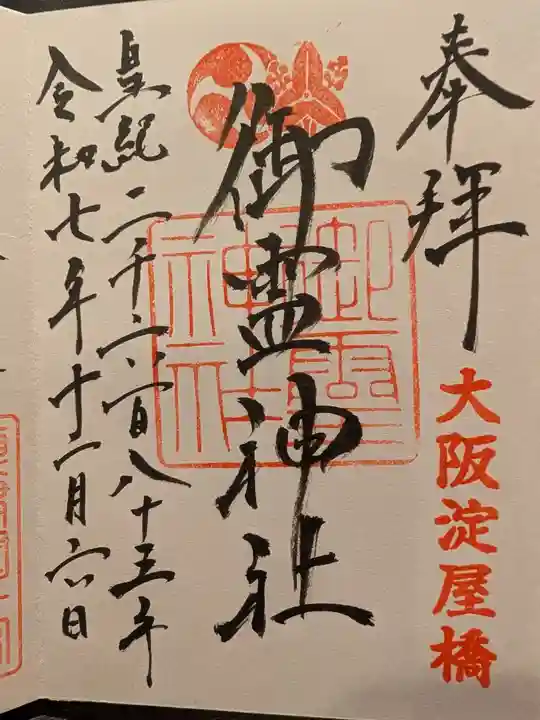 奉拝
大阪淀屋橋
御霊神社
御霊神社
皇紀二千六百八十三年
令和七年十二月六日